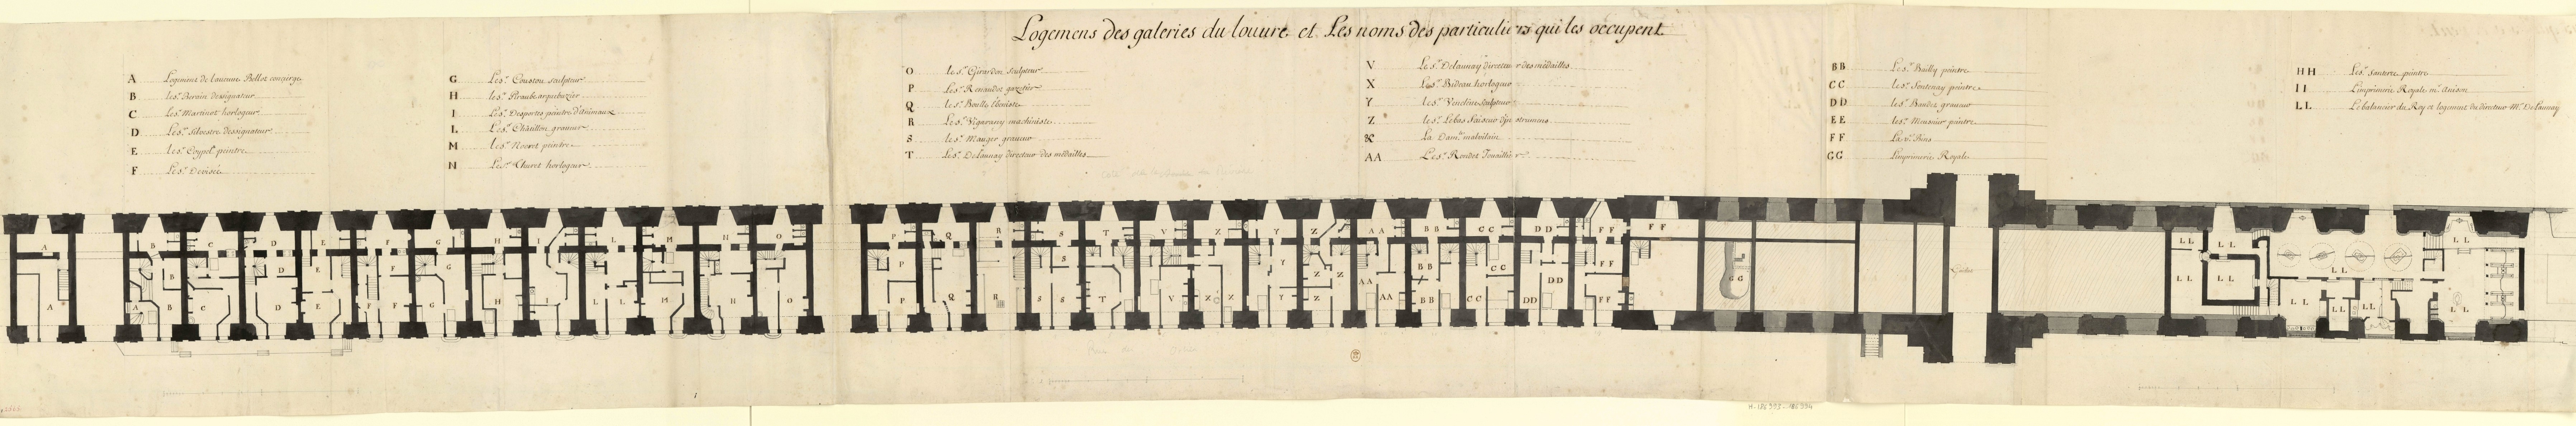 Logemens des galeries du louure et Les noms des particuliers qui les occupent
A Logement de laueuue Bellot concierge
B le sr. Berain dessignateur
C le sr. Martinot horlogeur
D Le sr. Silvestre dessignateur
E le sr. Coypel peintre
F Le sr. Devisée
G Le sr. Coustou sculpteur
H le sr. Piraube arquebuzier
I Le sr. Desportes peintre d'animaux
L Le sr. Châtillon graueur
M le sr. Nocret peintre
N Le sr. Thuret horlogeur
O le sr. Girardon sculpteur
P Le sr. Renaudot gazetier
Q le sr. Boulle ébeniste
R le sr. Vigarany machiniste
S le sr. Mauger graueur
T Le sr. De Launay directeur des médailles
V Le sr. Delaunay directeur des médailles
X Le sr. Bideau horlogeur
Y le sr. Vencline sculpteur
Z le sr. Lebas faiseur d'jnstrumens
& La Dam.lle
AA Le sr. Rondet Jouaillier
BB Le sr. Bailly peintre
CC le sr. Fontenay peintre
DD le sr. Baudez graueur
EE le sr. Meusnier peintre
FF La ve.
GG L'imprimerie Royale
HH Le sr. Santerre peintre
II L'imprimerie Royale mr. Anison
LL Le balancier du Roy et logement du directeur Mr. De Launay
A B C D E F G H I L M N O P Q R S T V Z Y Z AA BB CC DD FF FF
A A B C D E F G H I L M N O P Q R S T V Z Y Z AA BB CC DD FF GG LL
Guichet
H.186 993-186 994